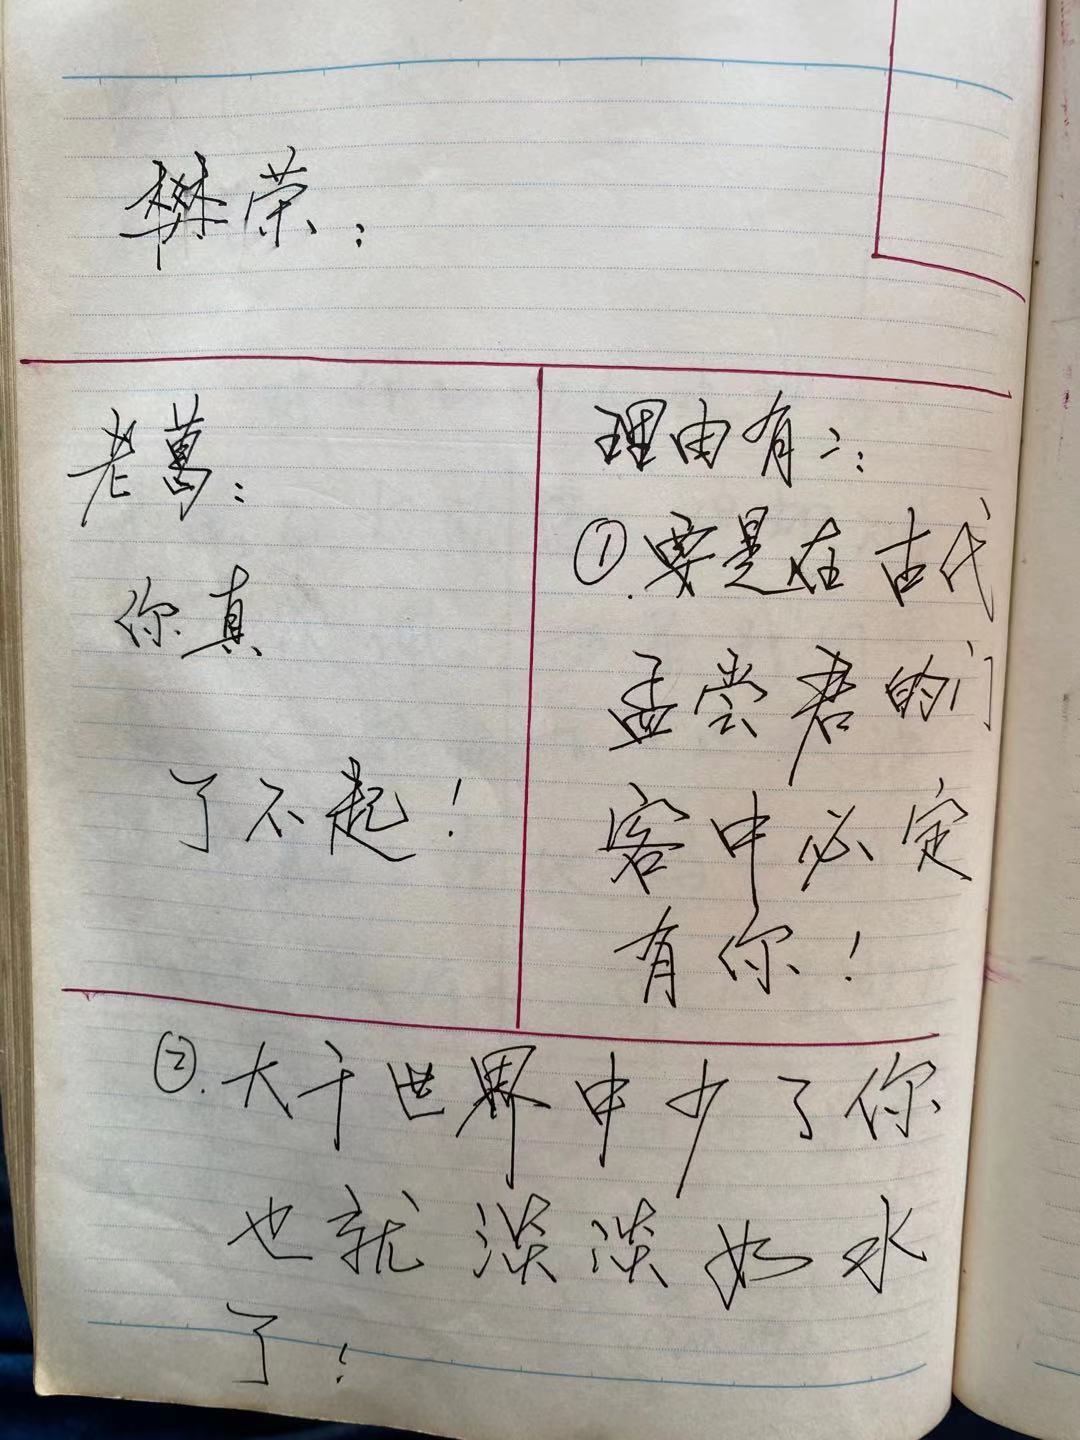 樊荣：
老萬：
你真
了不起！
理由有二：
①.要是在古代
孟尝君的门
客中必定
有你！
②.大千世界中少了你
也就淡淡如水
了！